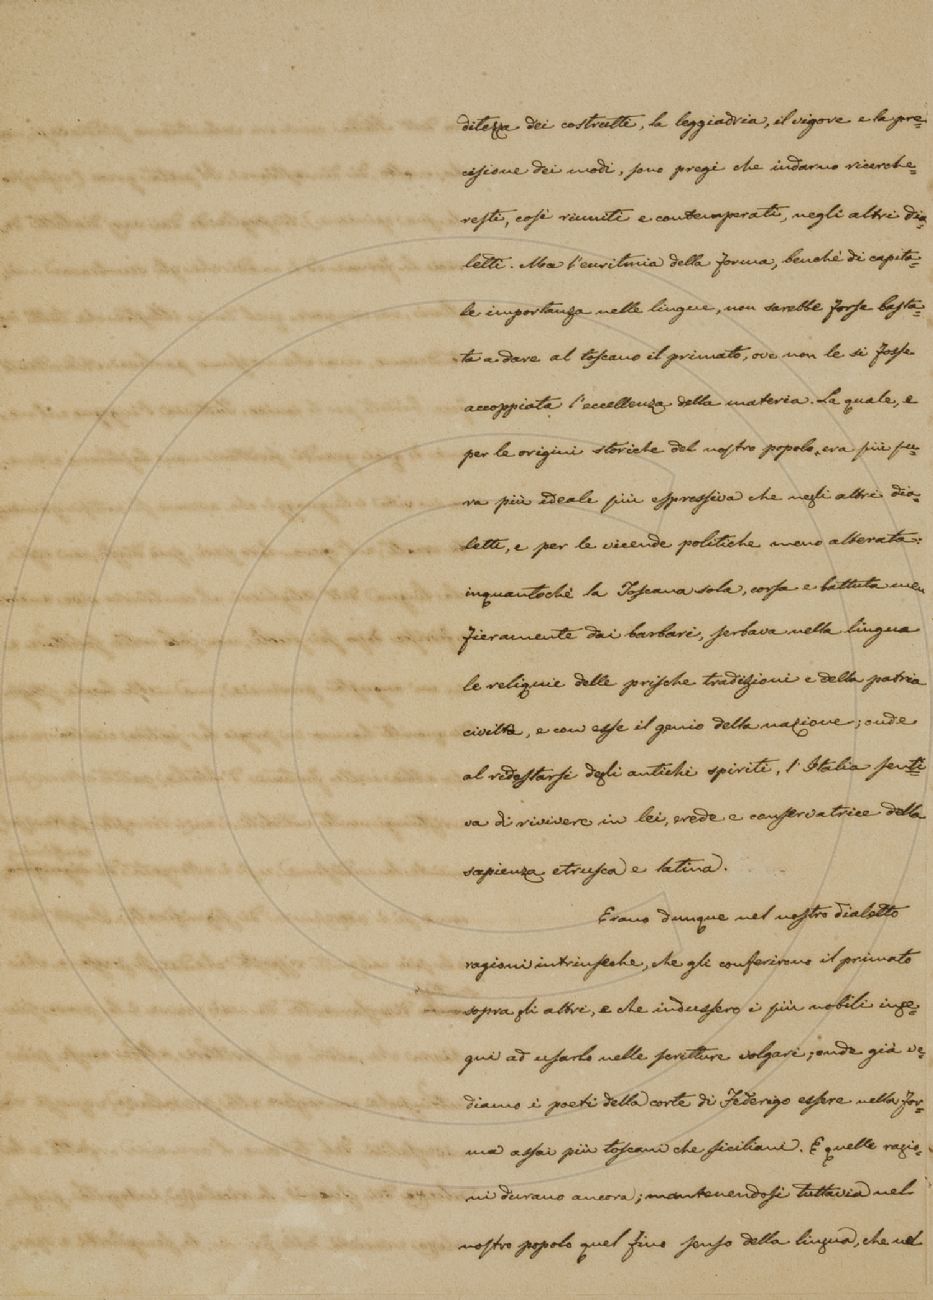 ditezza dei costrutti, la leggiadria, il vigore e la pre=
cisione dei modi, sono pregi che indarno ricerche=
resti, così riuniti e contemperati, negli altri dia=
letti. Ma l'euritmia della forma, benché di capita=
le importanza nelle lingue, non sarebbe forse basta=
ta a dare al toscano il primato, ove non le si fosse
accoppiata l'eccellenza della materia. La quale, e
per le origini storiche del nostro popolo, era più pu=
ra più ideale più espressiva che negli altri dia=
letti, e per le vicende politiche meno alterata:
inquantoché la Toscana sola, corsa e battuta men
fieramente dai barbari, serbava nella lingua
le reliquie delle prische tradizioni e della patria
civiltà, e con esse il genio della nazione; onde
al ridestarsi degli antichi spiriti, l'Italia senti=
va di rivivere in lei, erede e conservatrice della
sapienza etrusca e latina.
Erano dunque nel nostro dialetto
ragioni intrinseche, che gli conferirono il primato
sopra gli altri, e che indussero i più nobili inge=
gni ad usarlo nelle scritture volgari; onde già ve=
diamo i poeti della corte di Federigo essere nella for=
ma assai più toscani che siciliani. E quelle ragio=
ni durano ancora; mantenendosi tuttavia nel
nostro popolo quel fino senso della lingua, che nel